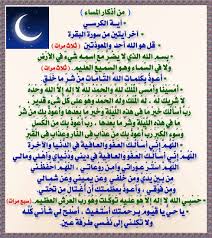 ( من أذكار المساء )
- آيـة الكرسـي
- آخر آيتين من سورة البقرة
- قل هو الله أحد والمعوذتين ( ثلاث مرات )
- بسم الله الذي لا يضر مع اسمه شيء في الأرض
ولا في السماء وهو السميع العليم . ( ثلاث مرات )
- أعوذ بكلمات الله التامات من شر ما خلق
- أمسينا وأمسى الملك لله والحمد لله لا إله إلا الله وحده
لا شريك له ، له الملك وله الحمد وهو على كل شيء قدير
رب أعوذ بك من عذاب في النار وعذاب في القبر
- اللهم إني أسألك العفو والعافية في الدنيا والآخرة
اللهم إني أسألك العفو والعافية في ديني ودنياي وأهلي ومالي
اللهم استر عوراتي وآمن روعاتي ، اللهم احفظني
من بين يدي ومن خلفي وعن يميني وعن شمالي
ومن فوقي ، وأعوذ بعظمتك أن أغتال من تحتي
- حسبي الله لا إله إلا هو عليه توكلت وهو رب العرش العظيم ( سبع مرات )
- يا حي يا قيوم برحمتك أستغيث ، أصلح لي شأني كله
ولا تكلني إلى نفسي طرفة عين